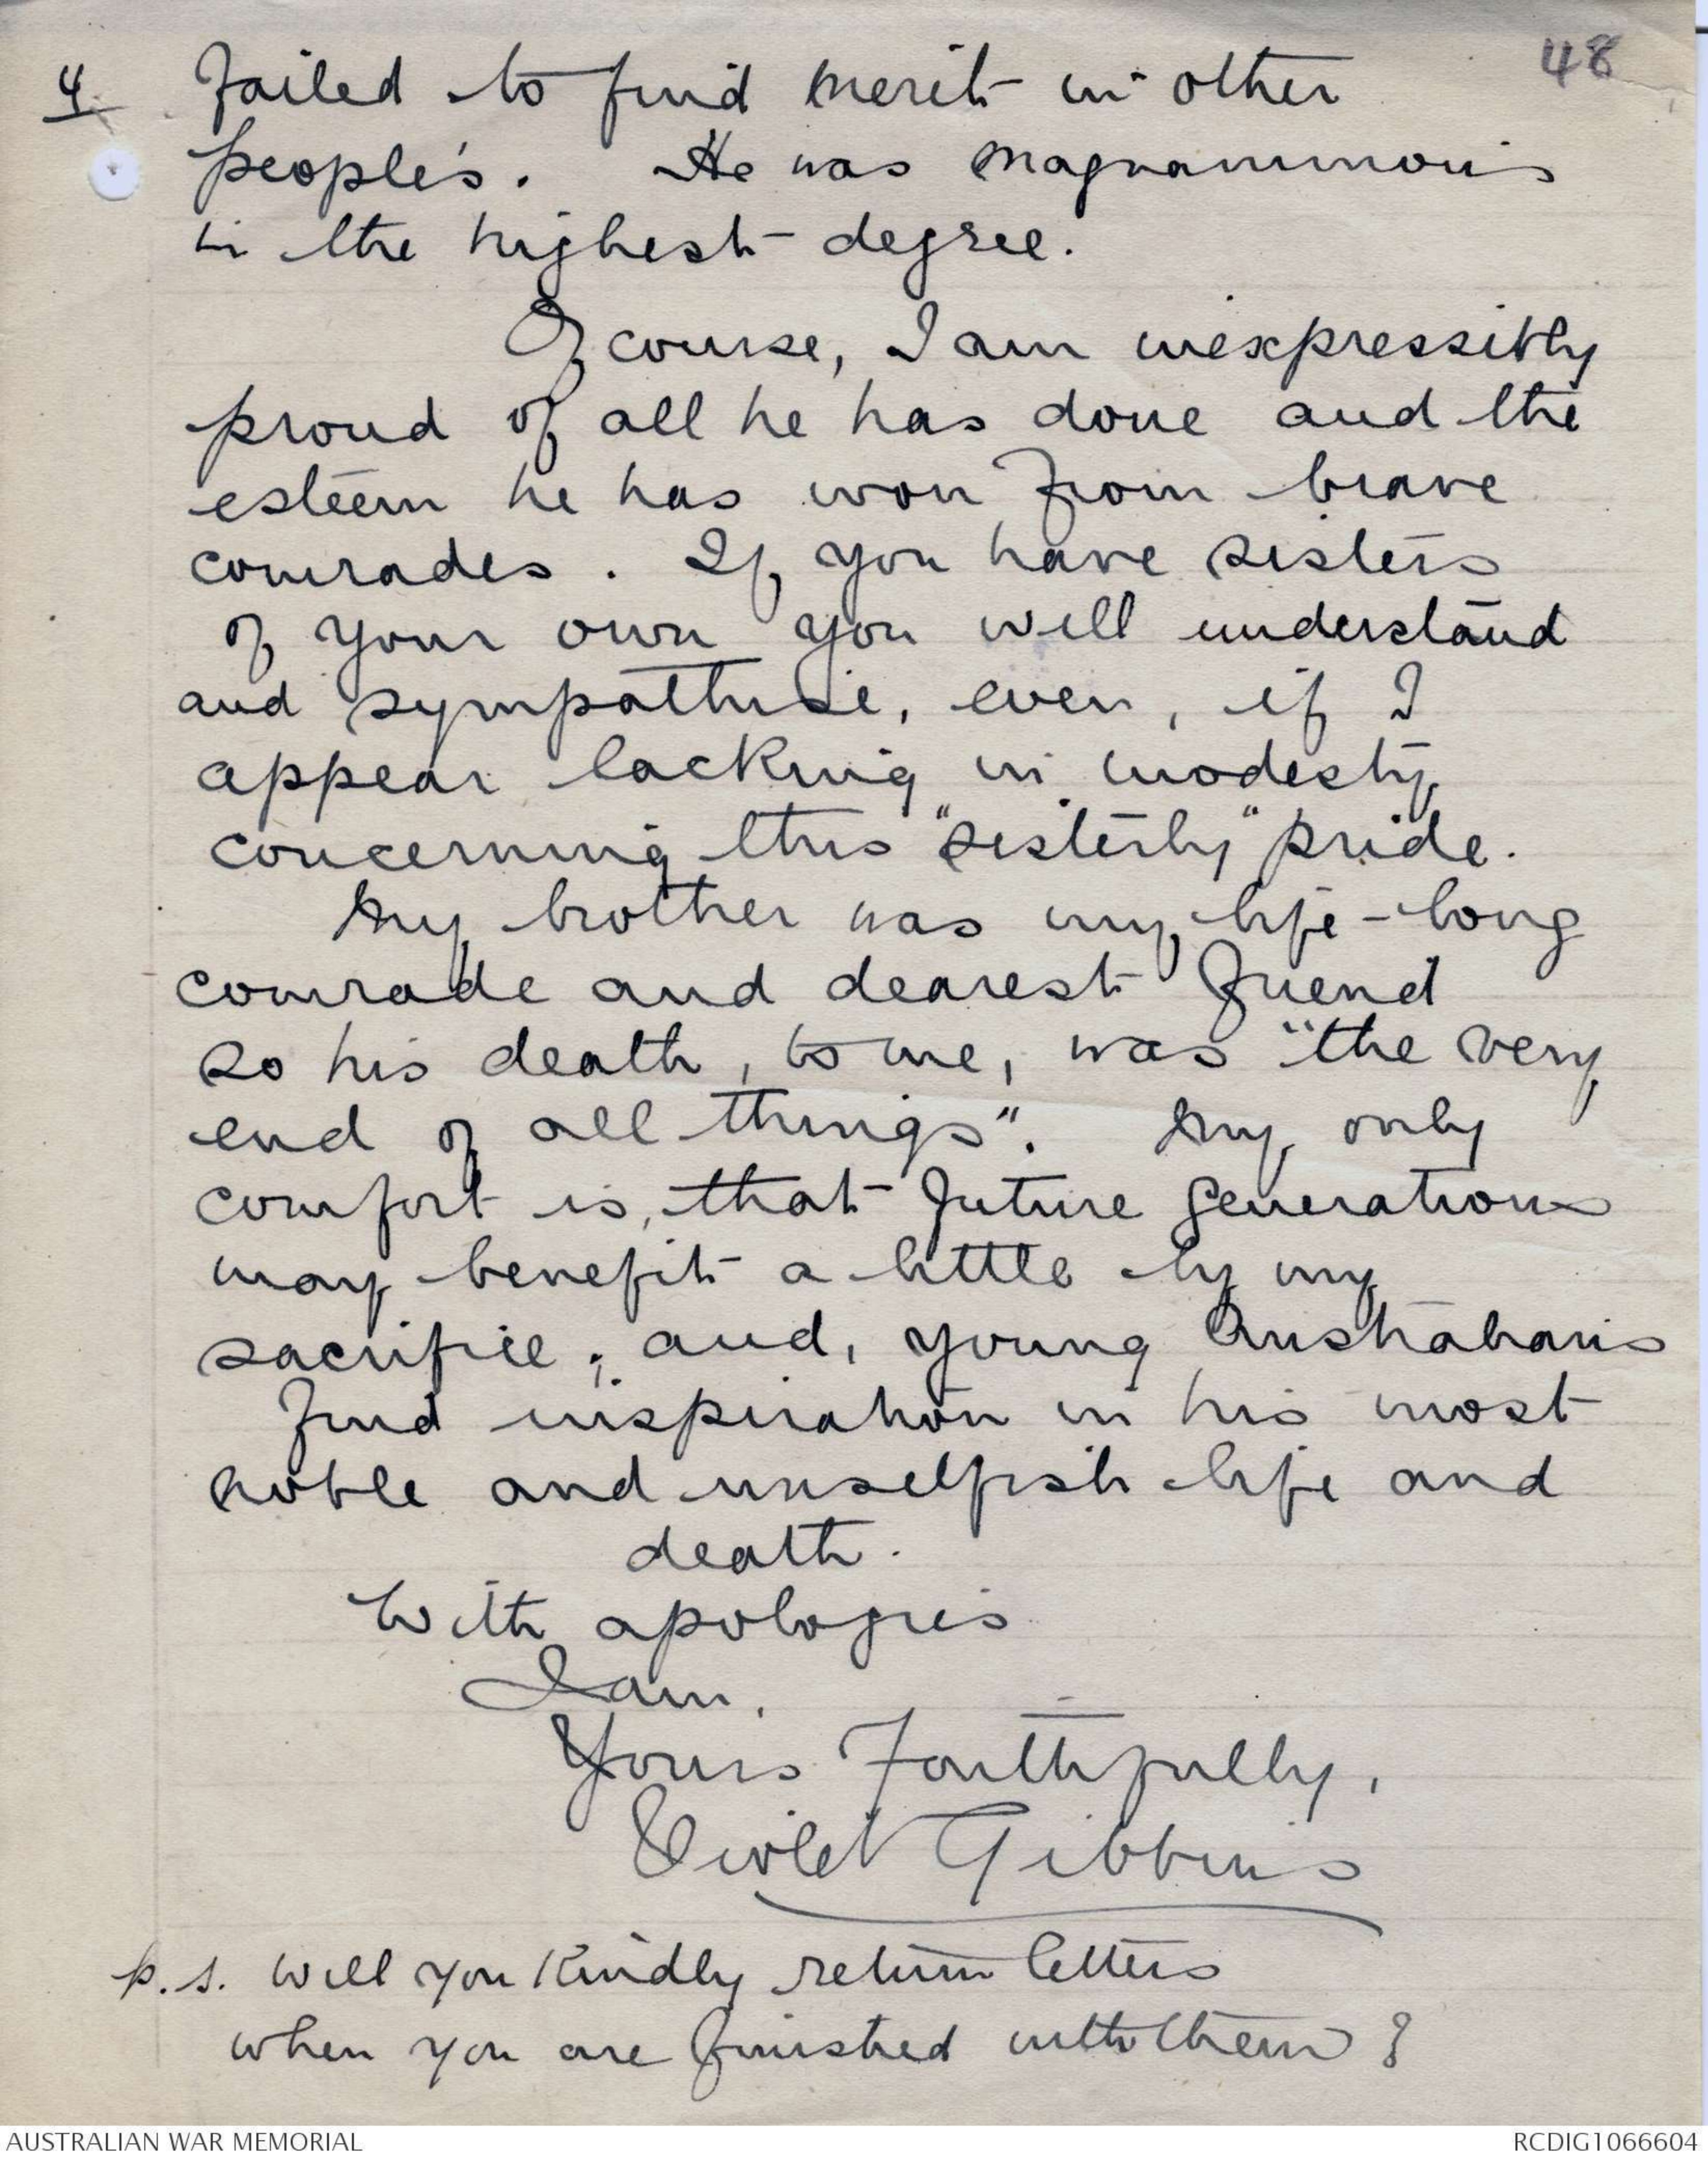 48
4 failed to find merit in other
people's. He was magnanimous
in the highest degree.
Of course, I am inexpressibly
proud of all he has done and the
esteem he has won from brave
comrades. If you have sisters
of your own you will understand
and sympathise, even, if I
appear lacking in modesty
concerning this "sisterly" pride.
My brother was my life-long
comrade and dearest friend
so his death, to me, was "the very
end of all things". My only
comfort is, that future generations
may benefit a little by my
sacrifice; and, young Australians
find inspiration in his most
noble and unselfish life and
death.
With apologies
I am,
Yours Faithfully,
Violet Gibbins
p.s. Will you kindly return letters
when you are finished with them?
AUSTRALIAN WAR MEMORIAL
RCDIG1066604